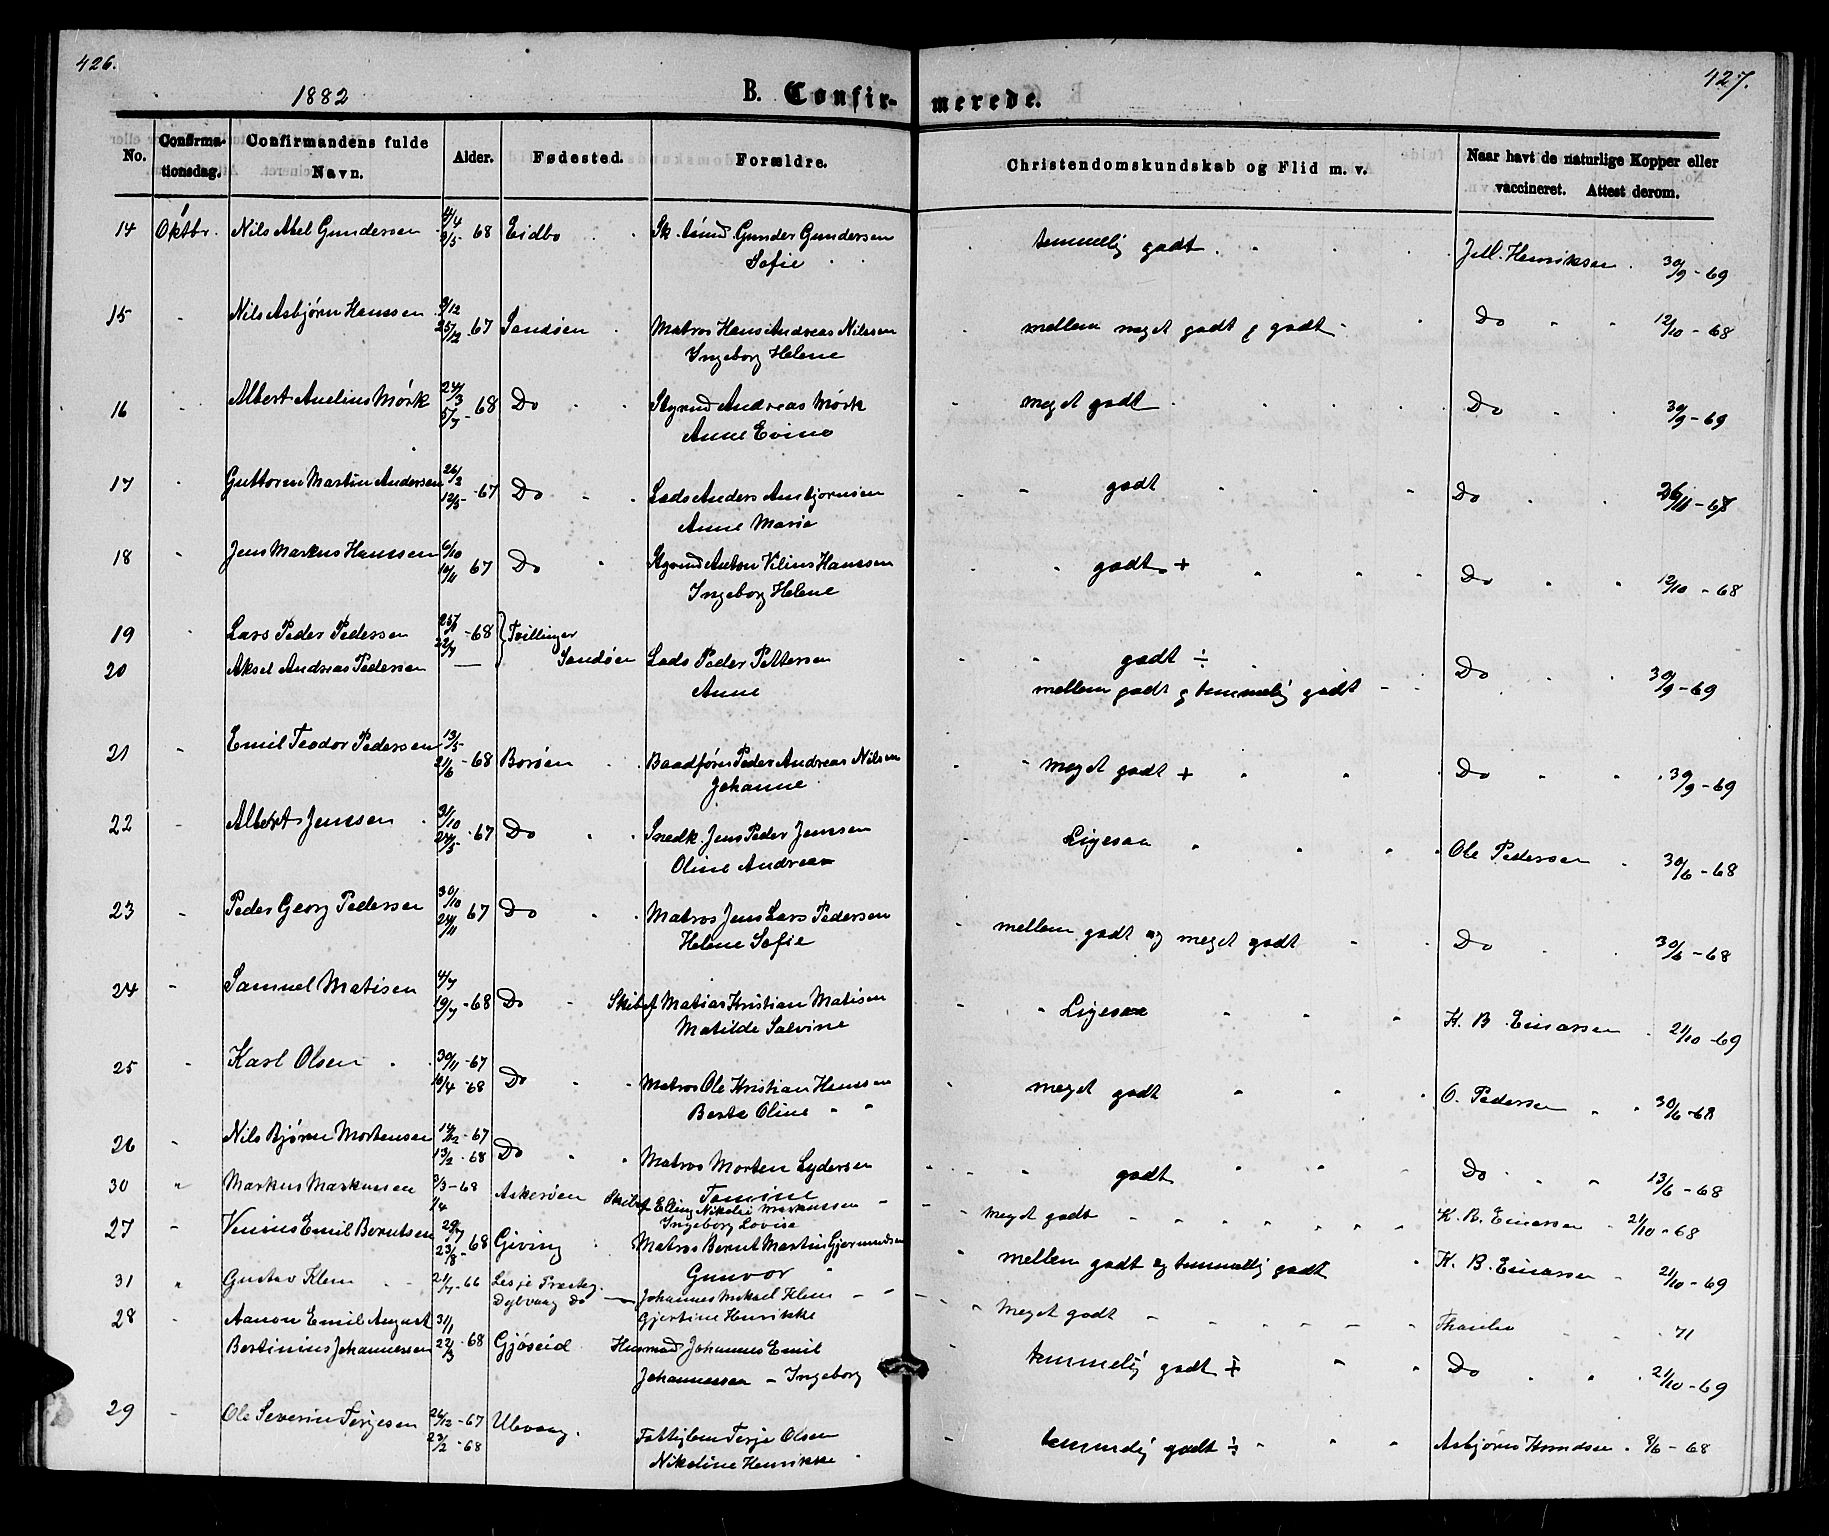 426.
427.
1882
B. Confir-
merede.
No.
Confirma-
tionsdag.
Confirmandens fulde
Navn.
Alder.
Fødested.
Forældre.
Christendomskundskab og Flid m. v.
Naar havt de naturlige Kopper eller
vaccineret. Attest derom.
14 Oktbr. Nils Abel Gundersen 4/4 Eidbo Gunder Gundersen temmelig godt J.M. Henriksen 30/9 - 69
9/5 - 68 Sofie
15 Nils Asbjørn Hanssen 9/12 Sandøen Matros Hans Andreas Nilssen mellem meget godt og godt Do 12/10 - 68
25/12 - 67 Ingeborg Helene
16 Albert Anelius Mørk 24/3 Do Styrmd Andreas Mørk meget godt Do 30/9 - 69
5/7 - 68 Anne Evine
17 Guttorm Martin Andersen 26/2 Do Lods Anders Anbjørnsen godt Do 26/11 - 67
12/5 - 67 Anne Marie
18 Jens Markus Hanssen 6/10 Do Styrmd Anton Vilius Hanssen godt + Do 12/10 - 68
10/11 - 67 Ingeborg Helene
19 Lars Peder Pedersen - 68 Tvillinger godt ÷
20 Aksel Andreas Pedersen — Sandøen Lods Peder Pettersen mellem godt og temmelig godt Do 30/9 - 69
Anne
21 Emil Teodor Pedersen 13/5 Borøen Baadfører Peder Andreas Nilsen meget godt + Do 30/9 - 69
21/6 - 68 Johanne
22 Albert Jenssen 31/10 Do Snedk. Jens Peder Jenssen Ligesaa Ole Pedersen 30/6 - 68
24/5 - 67 Oline Andrea
23 Peder Georg Pedersen 30/10 Do Matros Jens Lars Pedersen mellem godt og meget godt Do 30/6 - 68
24/11 - 67 Helene Sofie
24 Samuel Matisen 4/7 Do Skibsf Matias Kristian Matisen Ligesaa K. B. Einarsen 21/10 - 69
19/7 - 68 Matilde Salvine
25 Karl Olsen 30/11 - 67 Do Matros Ole Kristian Hanssen meget godt O. Pedersen 30/6 - 68
10/4 - 68 Berte Oline
26 Nils Bjørn Mortensen 14/12 - 67 Do Matros Morten Lydersen godt Do 13/6 - 68
13/2 - 68 Tomine
30 Markus Markussen 3/3 - 68 Askerøen Skibsf Elling Nikolai Markussen Meget godt K. B. Einarsen 21/10 - 68
1/4 Ingeborg Lovise
27 Venius Emil Berntsen 29/7 Giving Matros Bernt Martin Gjermundsen mellem godt og temmelig godt K. B. Einarsen 21/10 - 69
23/8 - 68 Gunvor
31 Gustav Klem 21/7 - 66 Lesje Præsteg. Johannes Mikael Klem Meget godt - 71
Dybvaag Do Gjertine Henrikke
28 Aanon Emil August 31/1 Gjøseid Husmd Johannes Emil temmelig godt ÷ Do 21/10 - 69
Bertinius Johannessen 22/3 - 68 Johannessen - Ingeborg
29 Ole Severin Terjesen 26/12 - 67 Ulevaag. Fattiglem Terje Olsen temmelig godt ÷ Asbjørn Knudsen 8/6 - 68
23/2 - 68 Nikoline Henrikke